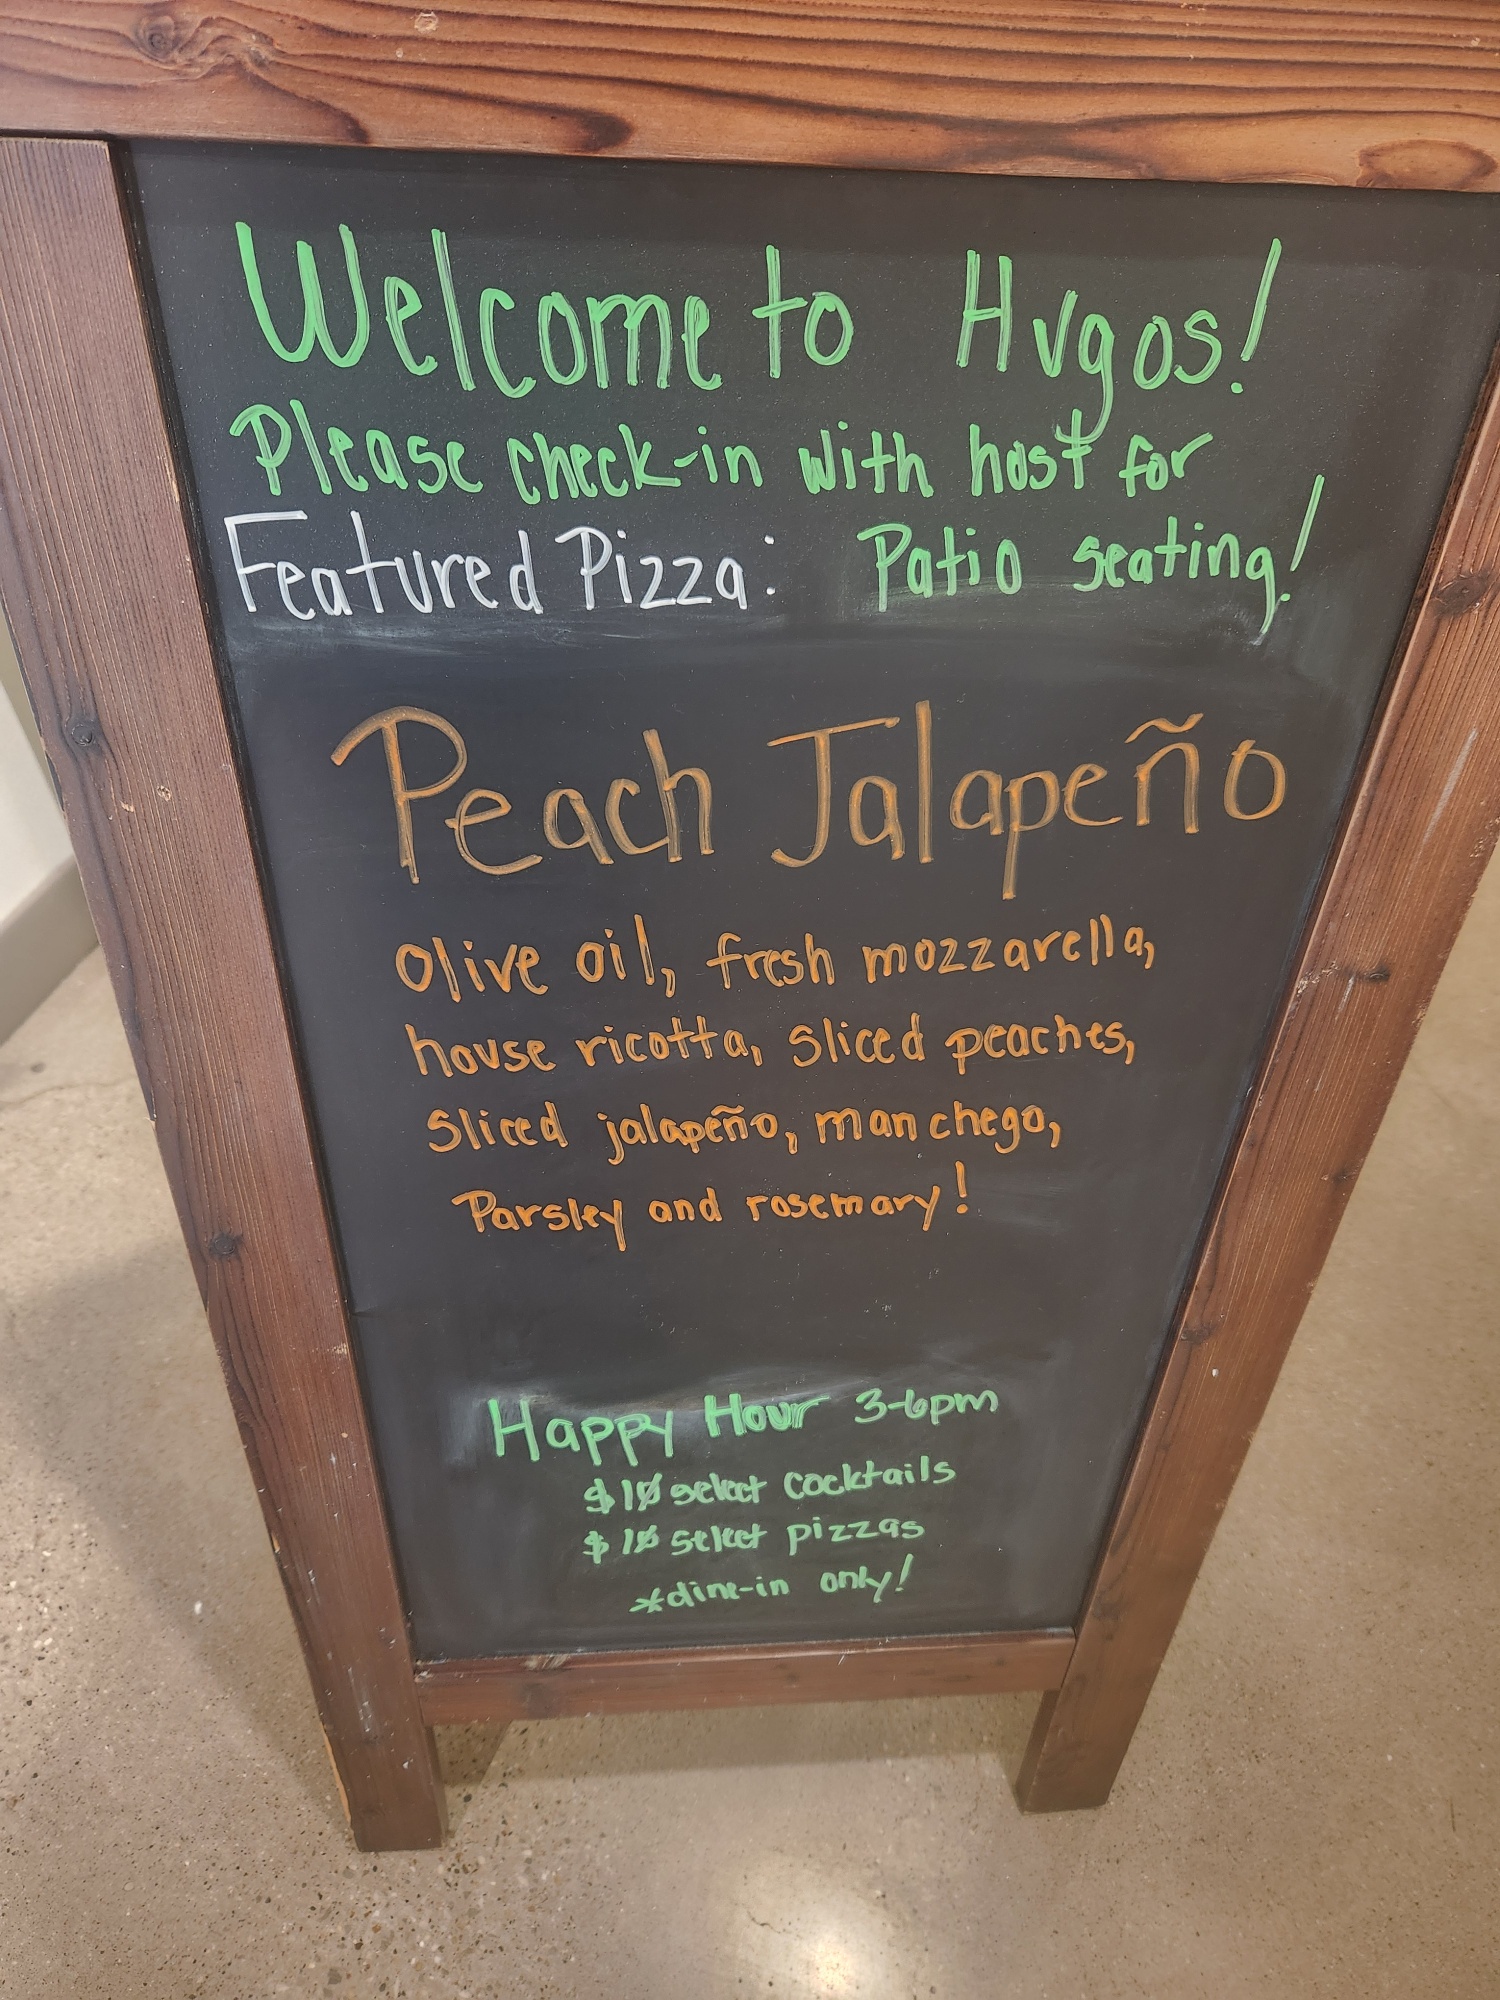 Welcome to Hugos!
Please check-in with host for
Patio seating!
Featured Pizza:
Peach Jalapeño
Olive oil, fresh mozzarella,
house ricotta, sliced peaches,
sliced jalapeño, manchego,
Parsley and rosemary!
Happy Hour 3-6pm
$10 select cocktails
$10 select pizzas
*dine-in only!